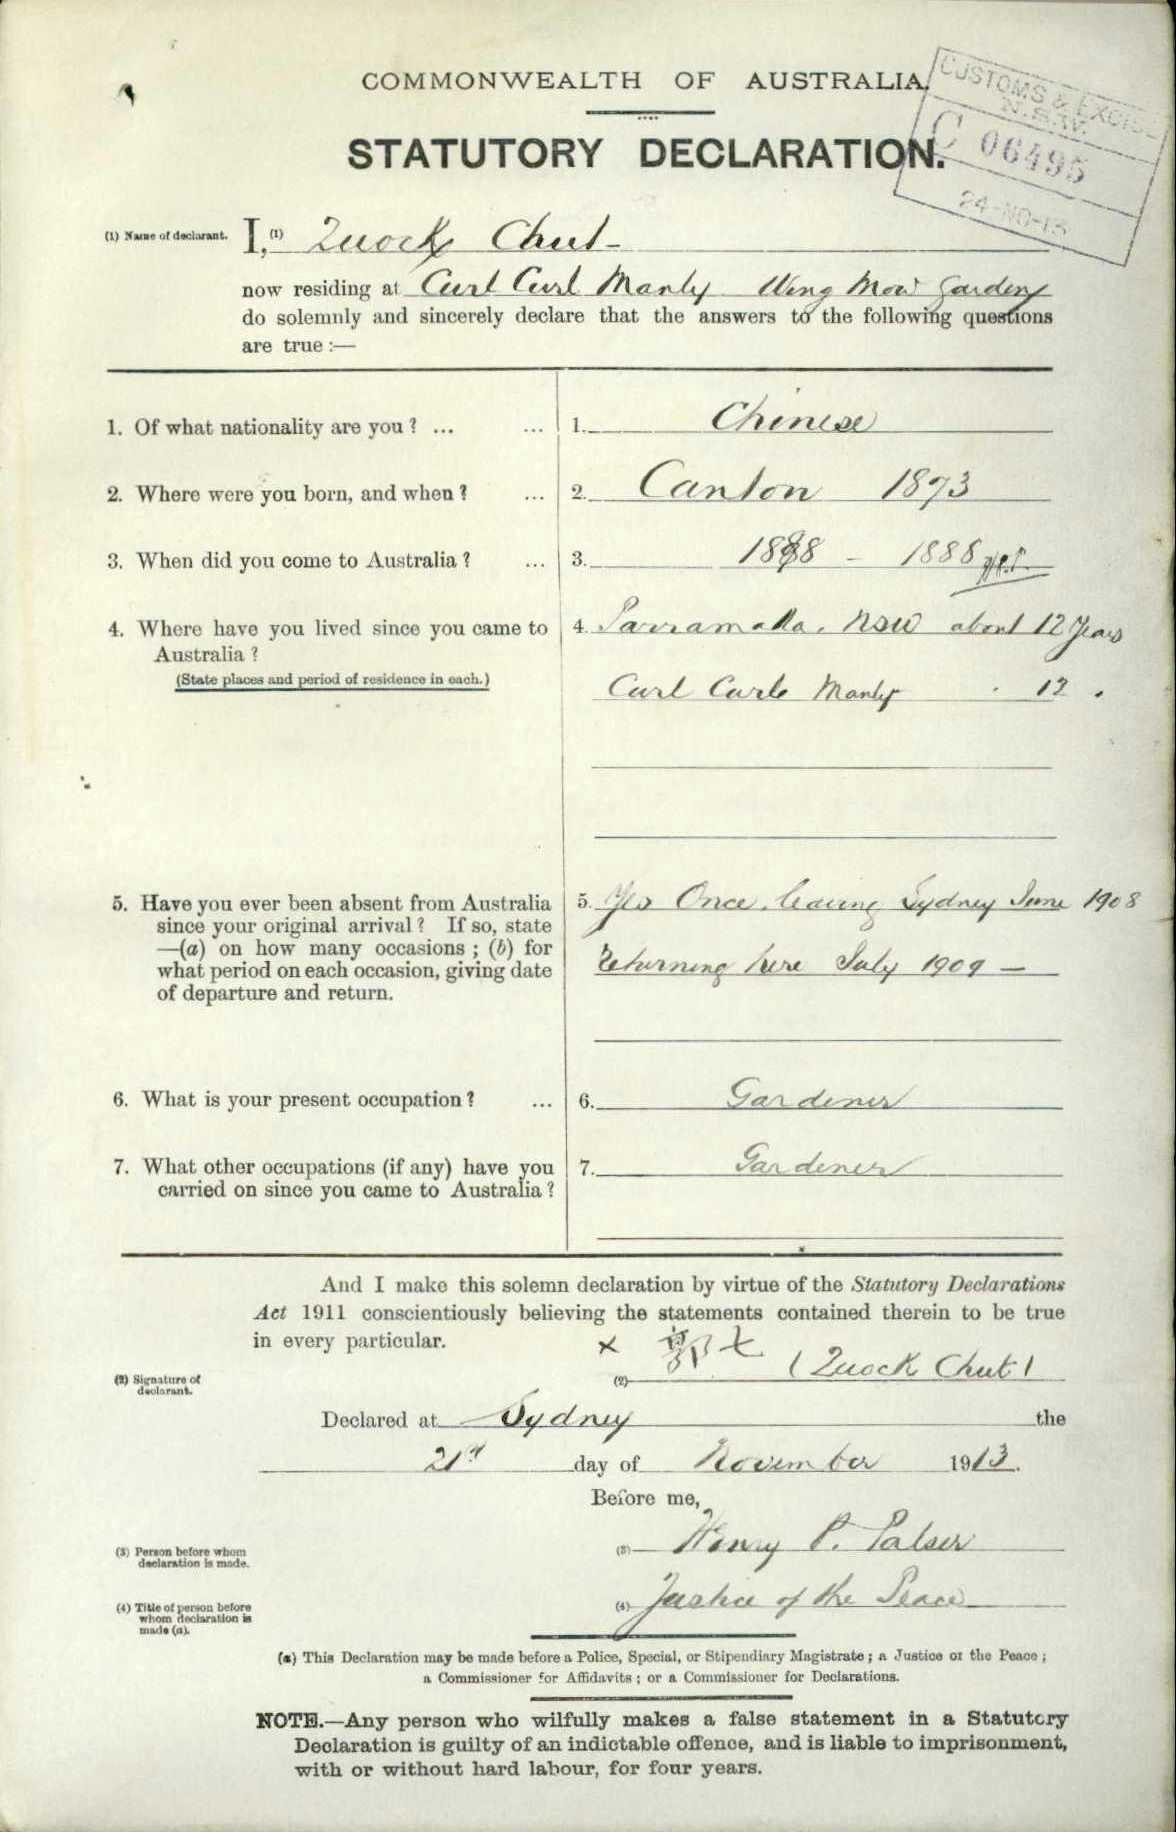 COMMONWEALTH OF AUSTRALIA.
CUSTOMS & EXCISE
N.S.W.
C 06495
24-NO-13
STATUTORY DECLARATION.
(1) Name of declarant. I,(1) Quock Chut-
now residing at Curl Curl Manly Wing Mow Garden
do solemnly and sincerely declare that the answers to the following questions
are true :—
1. Of what nationality are you ? ... ... 1. Chinese
2. Where were you born, and when ? ... 2. Canton 1873
3. When did you come to Australia ? ... 3. 1888 - 1888 H.P.P.
4. Where have you lived since you came to 4. Parramatta. NSW about 12 Years
Australia ?
(State places and period of residence in each.) Curl Curl Manly " 12 "
5. Have you ever been absent from Australia 5. Yes Once. leaving Sydney June 1908
since your original arrival ? If so, state
—(a) on how many occasions ; (b) for
what period on each occasion, giving date returning here July 1909 —
of departure and return.
6. What is your present occupation ? ... 6. Gardener
7. What other occupations (if any) have you 7. Gardener
carried on since you came to Australia ?
And I make this solemn declaration by virtue of the Statutory Declarations
Act 1911 conscientiously believing the statements contained therein to be true
in every particular.
(2) Signature of declarant. (2) x 郭七 (Quock Chut)
Declared at Sydney the
21st day of November 1913.
Before me,
(3) Person before whom declaration is made. (3) Henry P. Palser
(4) Title of person before whom declaration is made (a). (4) Justice of the Peace
(a) This Declaration may be made before a Police, Special, or Stipendiary Magistrate ; a Justice of the Peace ;
a Commissioner for Affidavits ; or a Commissioner for Declarations.
NOTE.—Any person who wilfully makes a false statement in a Statutory
Declaration is guilty of an indictable offence, and is liable to imprisonment,
with or without hard labour, for four years.